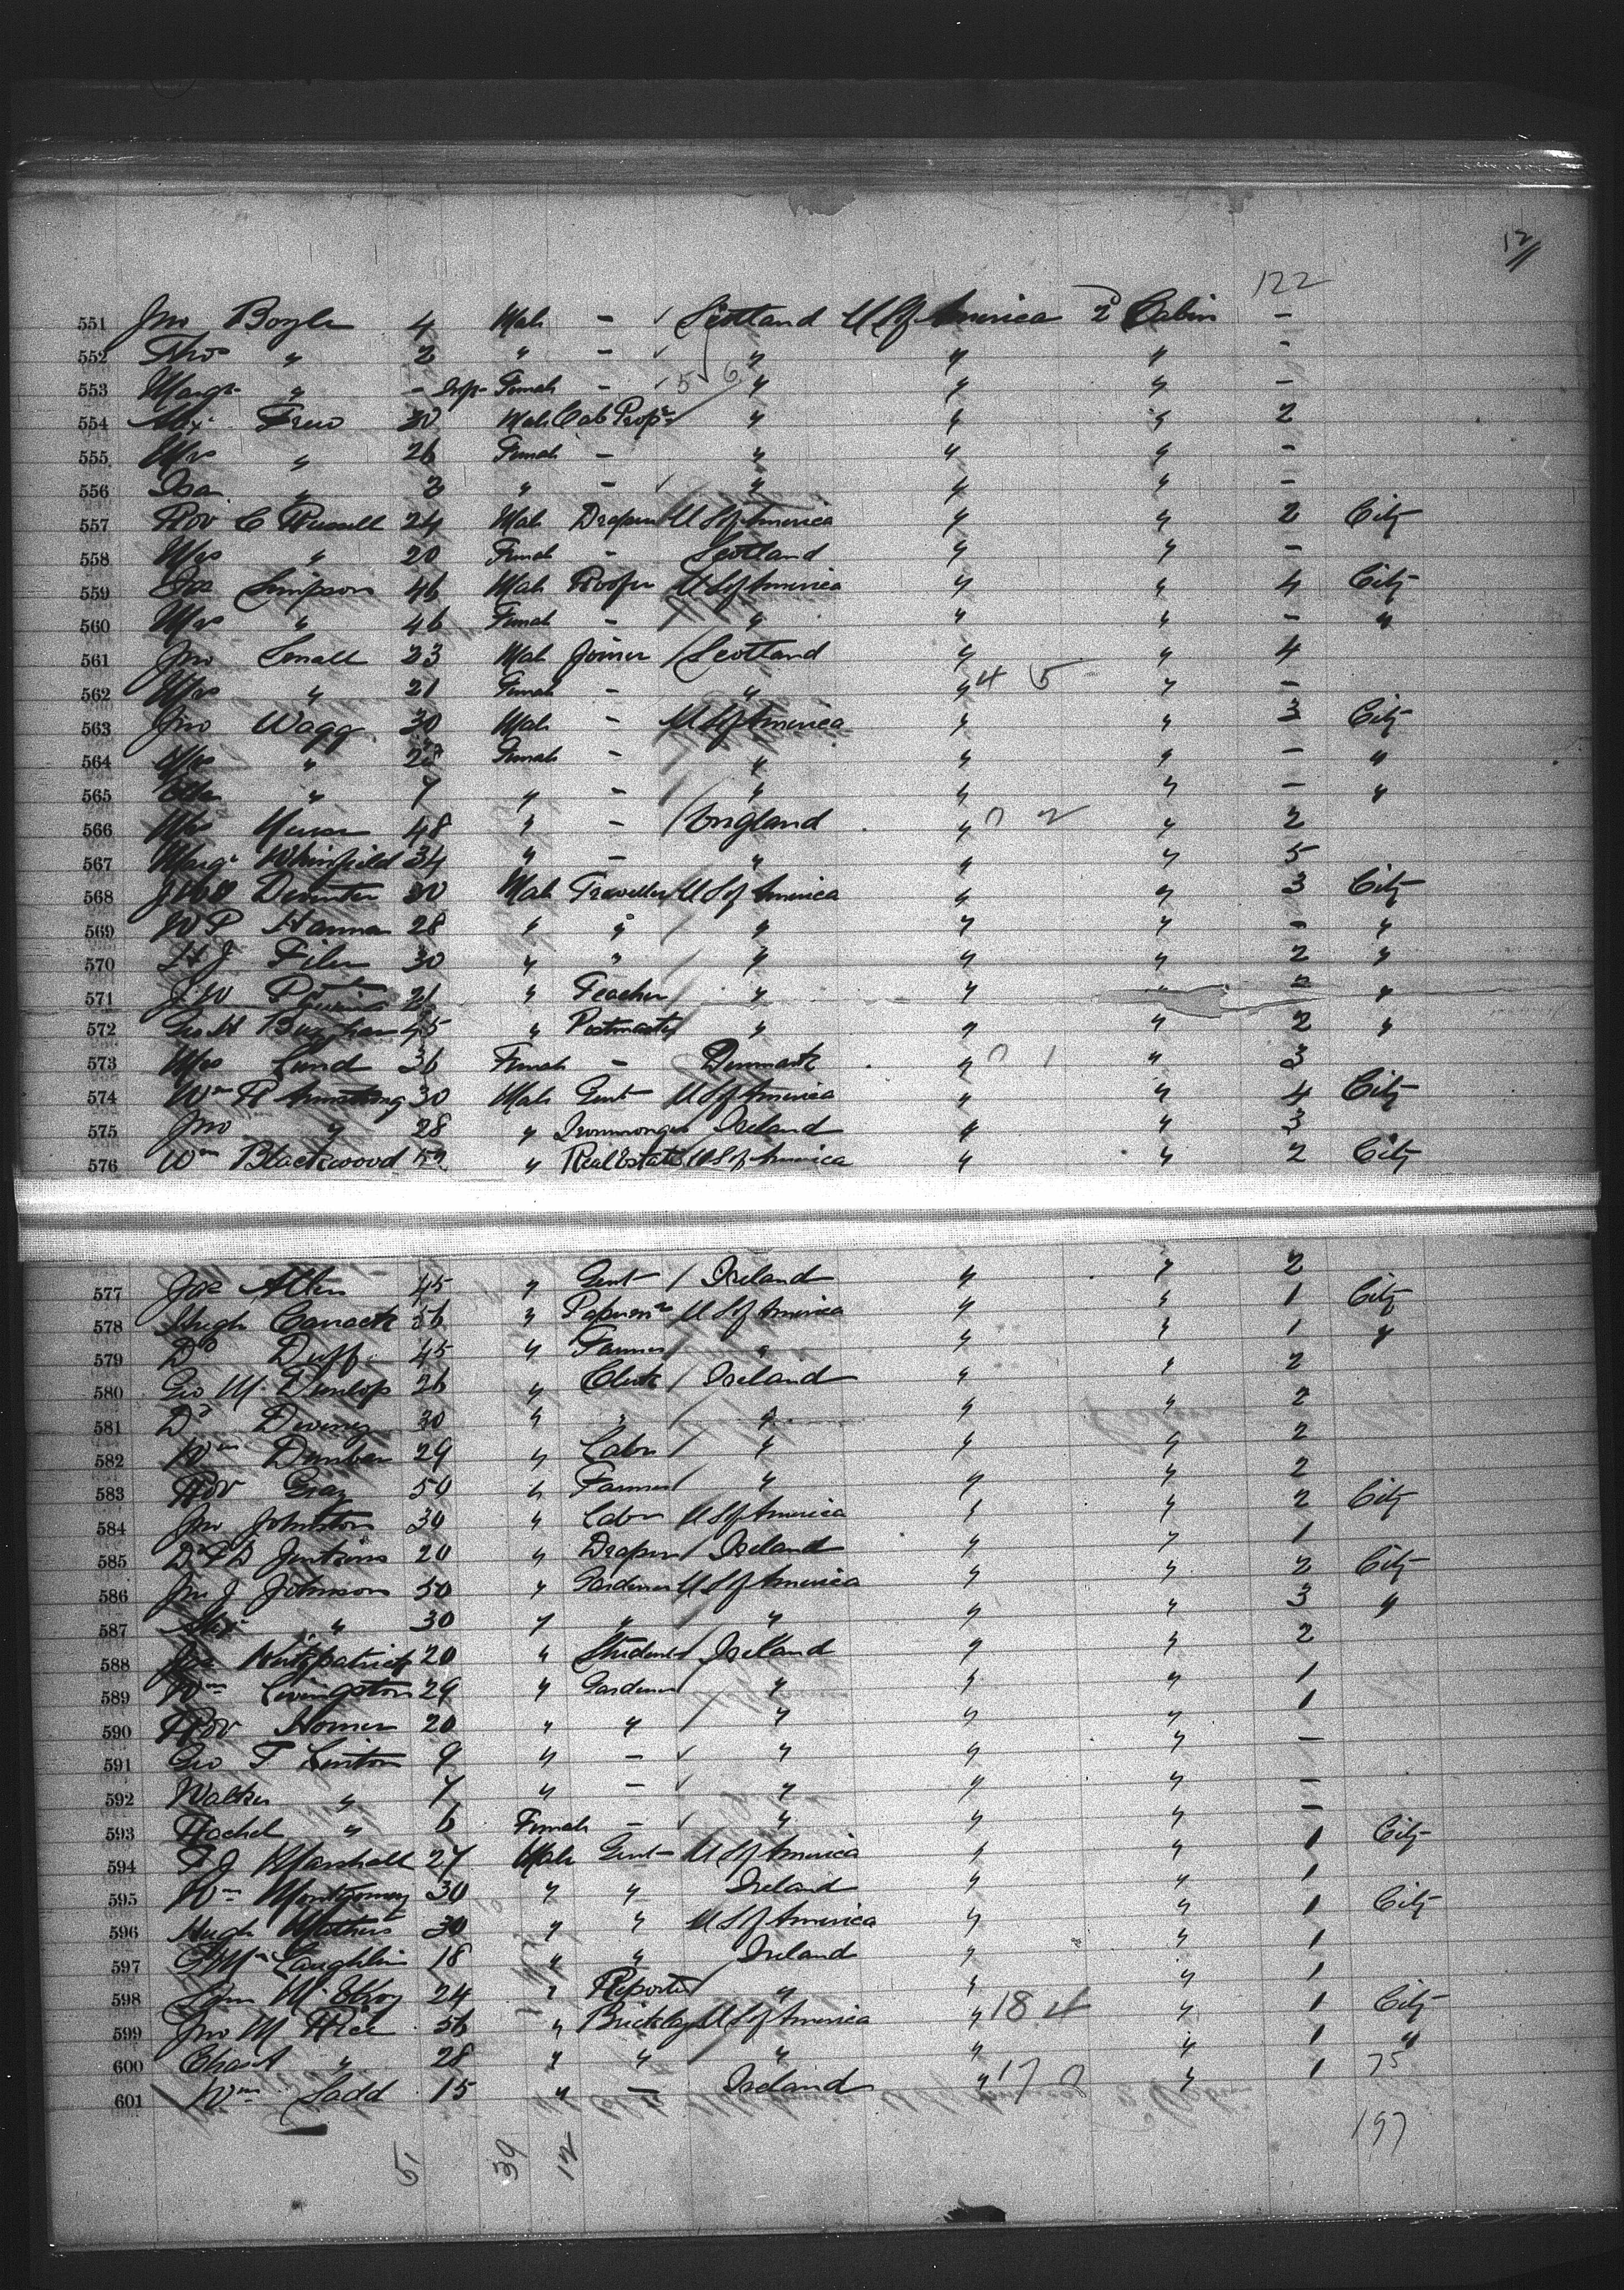 12
122
551 Jno Boyle 4 Male - ✓ Scotland U S of America 2 Cabin -
552 Thos " 2 " - ✓ " " " -
553 Margt " - Inf Female - ✓ 5 6 " " " -
554 Alex Frew 30 Male Cab Propr " " " 2
555 Mrs " 26 Female - " " " -
556 Isa " 2 " - ✓ " " " -
557 Rob C Russell 24 Male Draper U S of America " " 2 City
558 Mrs " 20 Female - Scotland " " -
559 Jas Simpson 46 Male Roofer U S of America " " 4 City
560 Mrs " 46 Female - " " " - "
561 Jno Small 23 Male Joiner / Scotland " " 4
562 Mrs " 21 Female - " " 4 5 " -
563 Jno Wagg 30 Male - U S of America " " 3 City
564 Mrs " 28 Female - " " " - "
565 " 7 " - " " " - "
566 48 " - / England " 0 2 " 2
567 Margt Whinfield 34 " - " " " 5
568 Deventer 30 Male Traveller U S of America " " 3 City
569 W P Hanna 28 " " / " " " - "
570 30 " " / " " " 2 "
571 J W 26 " Teacher / " " " "
572 Geo H 45 " Postmaster " " " 2 "
573 Mrs Lund 36 Female - Denmark " 0 1 " 3
574 Wm R Armstrong 30 Male Gent U S of America " " 4 City
575 Jno " 28 " Ironmonger Ireland " " 3
576 Wm Blackwood 52 " Real Estate U S of America " " 2 City
577 Jas Allen 45 " Gent / Ireland " " 2
578 Hugh 56 " U S of America " " 1 City
579 Dd Duff 45 " Farmer / " " " 1 "
580 Geo M. Dunlop 26 " Clerk / Ireland " " 2
581 Dd 30 " " / " " " 2
582 Wm Dunbar 29 " Labr / " " " 2
583 Rob Gray 50 " Farmer / " " " 2
584 Jno Johnston 30 " Labr U S of America " " 2 City
585 Jenkins 20 " Draper / Ireland " " 1
586 Jno J Johnson 50 " Gardener U S of America " " 2 City
587 Alex " 30 " " / " " " 3 "
588 Jas Kirkpatrick 20 " Student / Ireland " " 2
589 Wm Livingston 29 " Gardener / " " " 1
590 Rob Homer 20 " " / " " " 1
591 Geo T Linton 9 " - ✓ " " " -
592 Walter " 7 " - ✓ " " " -
593 Rachel " 6 Female - ✓ " " " -
594 Marshall 27 Male Gent U S of America " " 1 City
595 Wm Montgomery 30 " " Ireland " " 1
596 Hugh 30 " " U S of America " " 1 City
597 Laughlin 18 " " Ireland " " 1
598 24 " Reporter / " " " 1
599 Jno M Rice 56 " Bricklayer U S of America " 18 4 " 1 City
600 Chas A " 28 " " / " " " 1 "
601 Wm Ladd 15 " - Ireland " 17 0 " 1 75
197
51 39 12